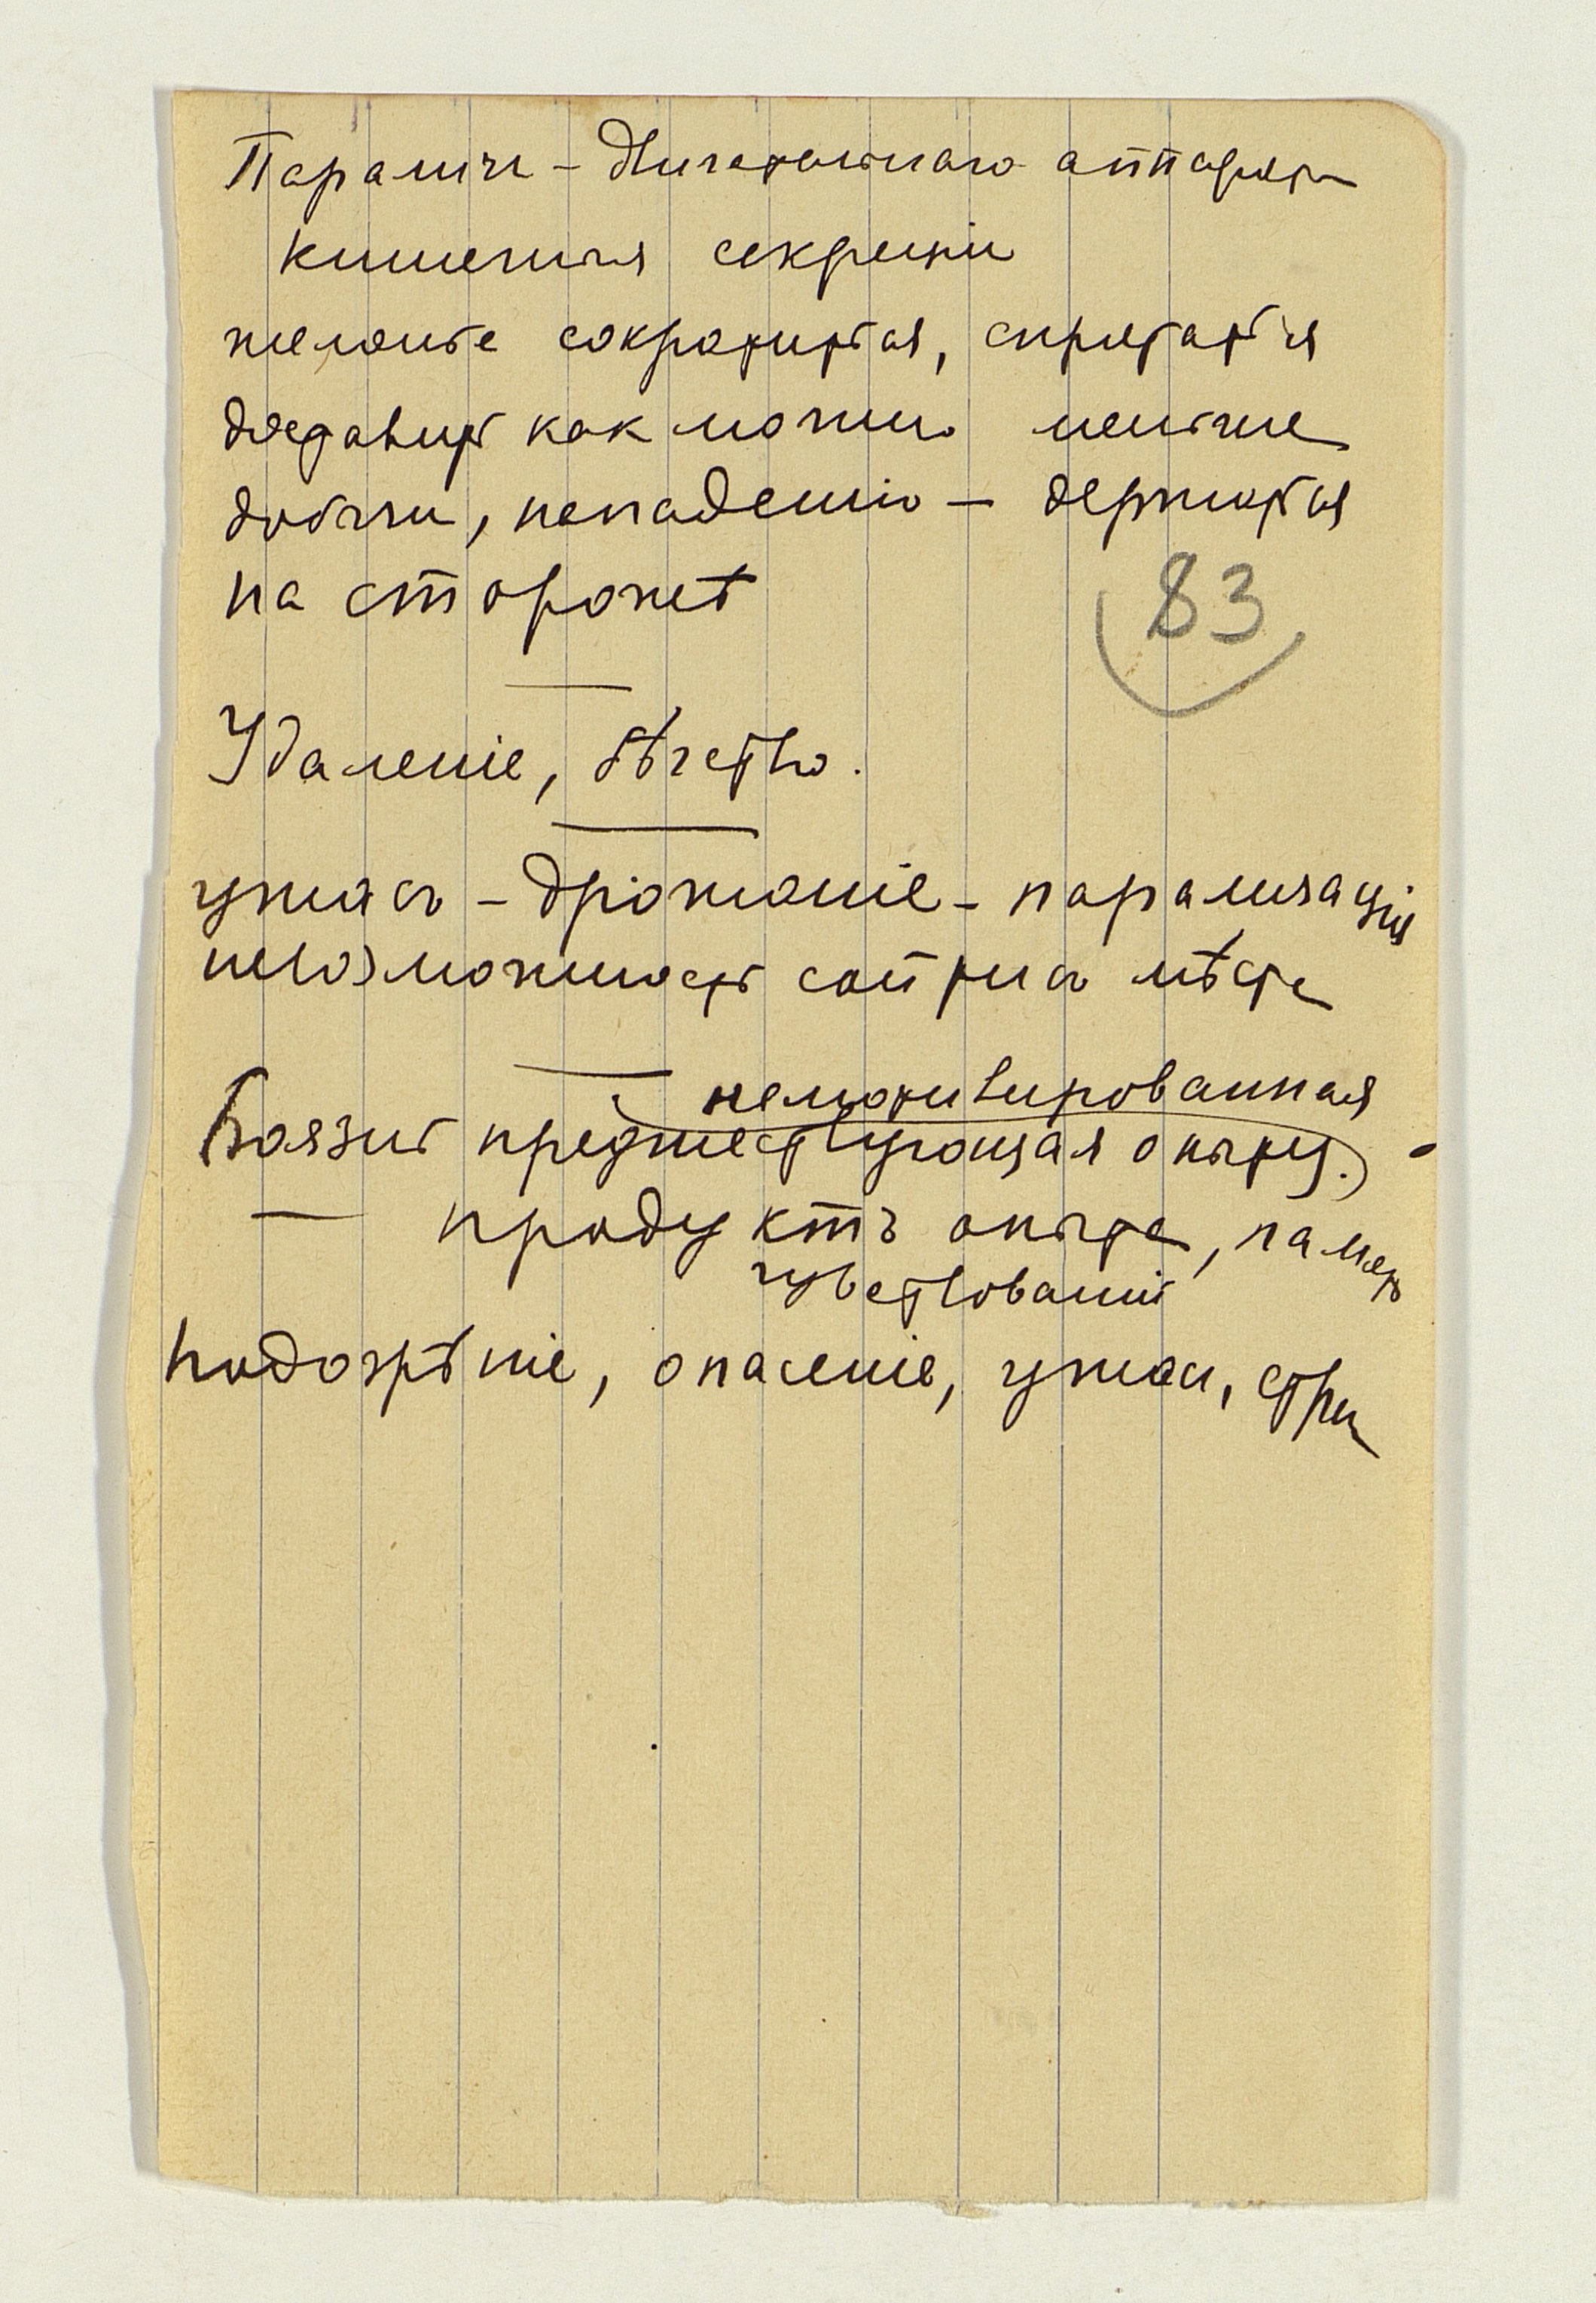 Параличъ - двигательнаго аппарата
кишечная секреція
желаніе сократиться, спрятаться
доставить как можно меньше
добычи, нападенію — держаться
на сторожѣ
83
Удаленіе, бѣгство.
ужасъ - дрожаніе - парализація
невозможность сойти съ мѣста
немотивированная
Боязнь предшествующая опыту.)
— продуктъ опыта, память
чувствованій
Подозрѣніе, опасеніе, ужасъ, страх